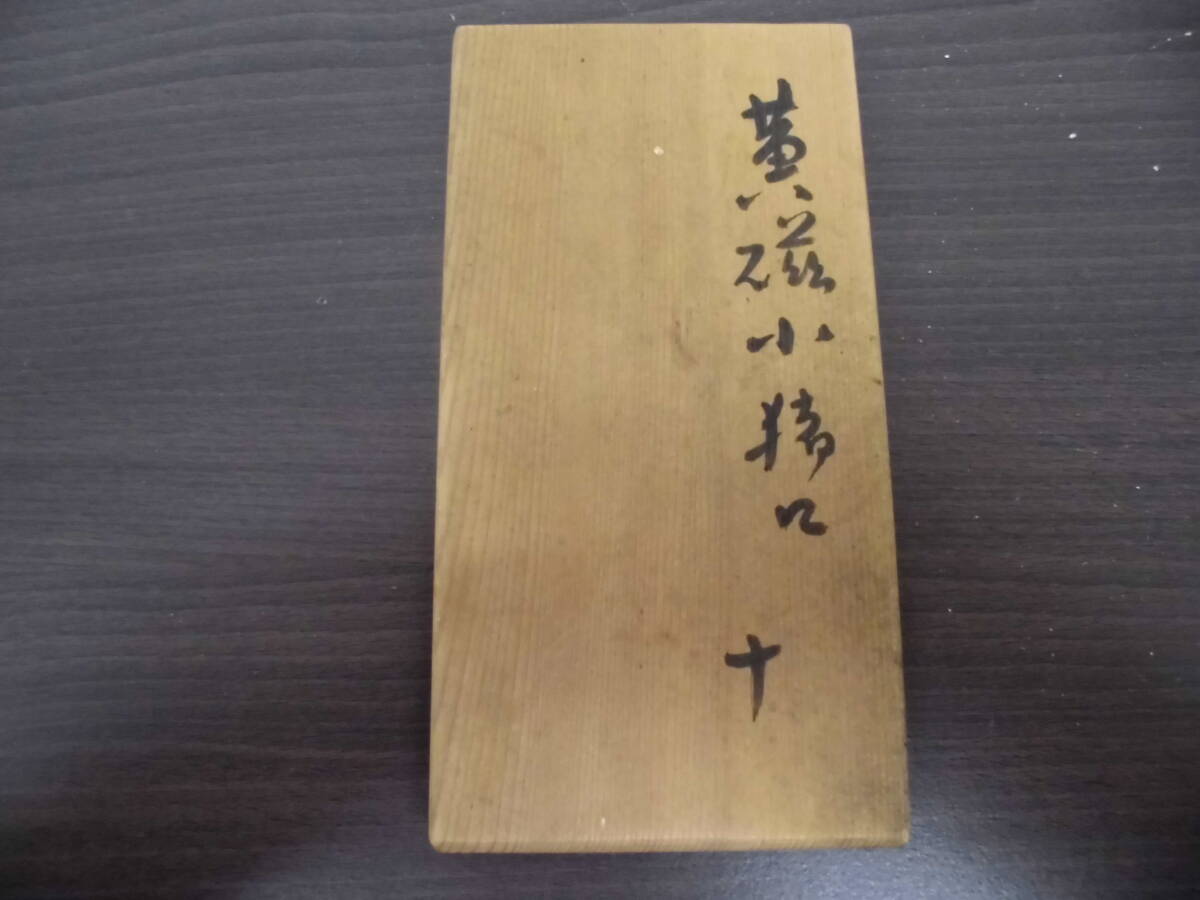 黄磁小猪口 十